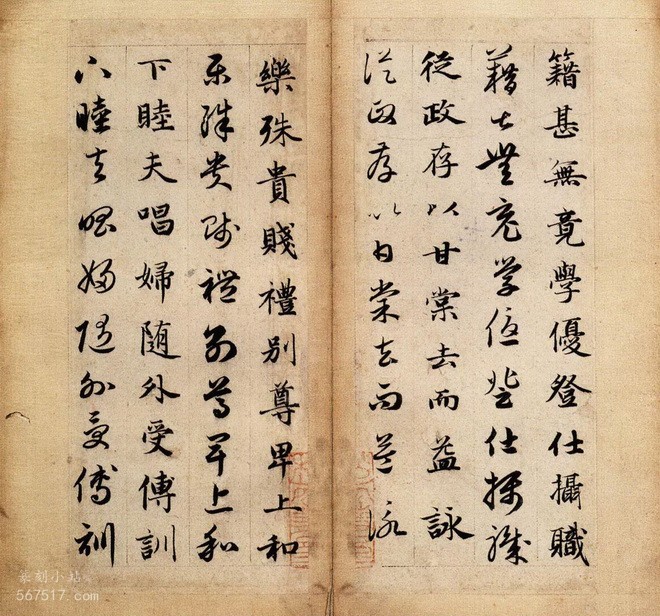 籍甚無竟學優登仕攝職
籍甚無竟學優登仕攝職
從政存以甘棠去而益詠
從政存以甘棠去而益詠
樂殊貴賤禮別尊卑上和
樂殊貴賤禮別尊卑上和
下睦夫唱婦隨外受傅訓
下睦夫唱婦隨外受傅訓
篆刻小站
567517.com